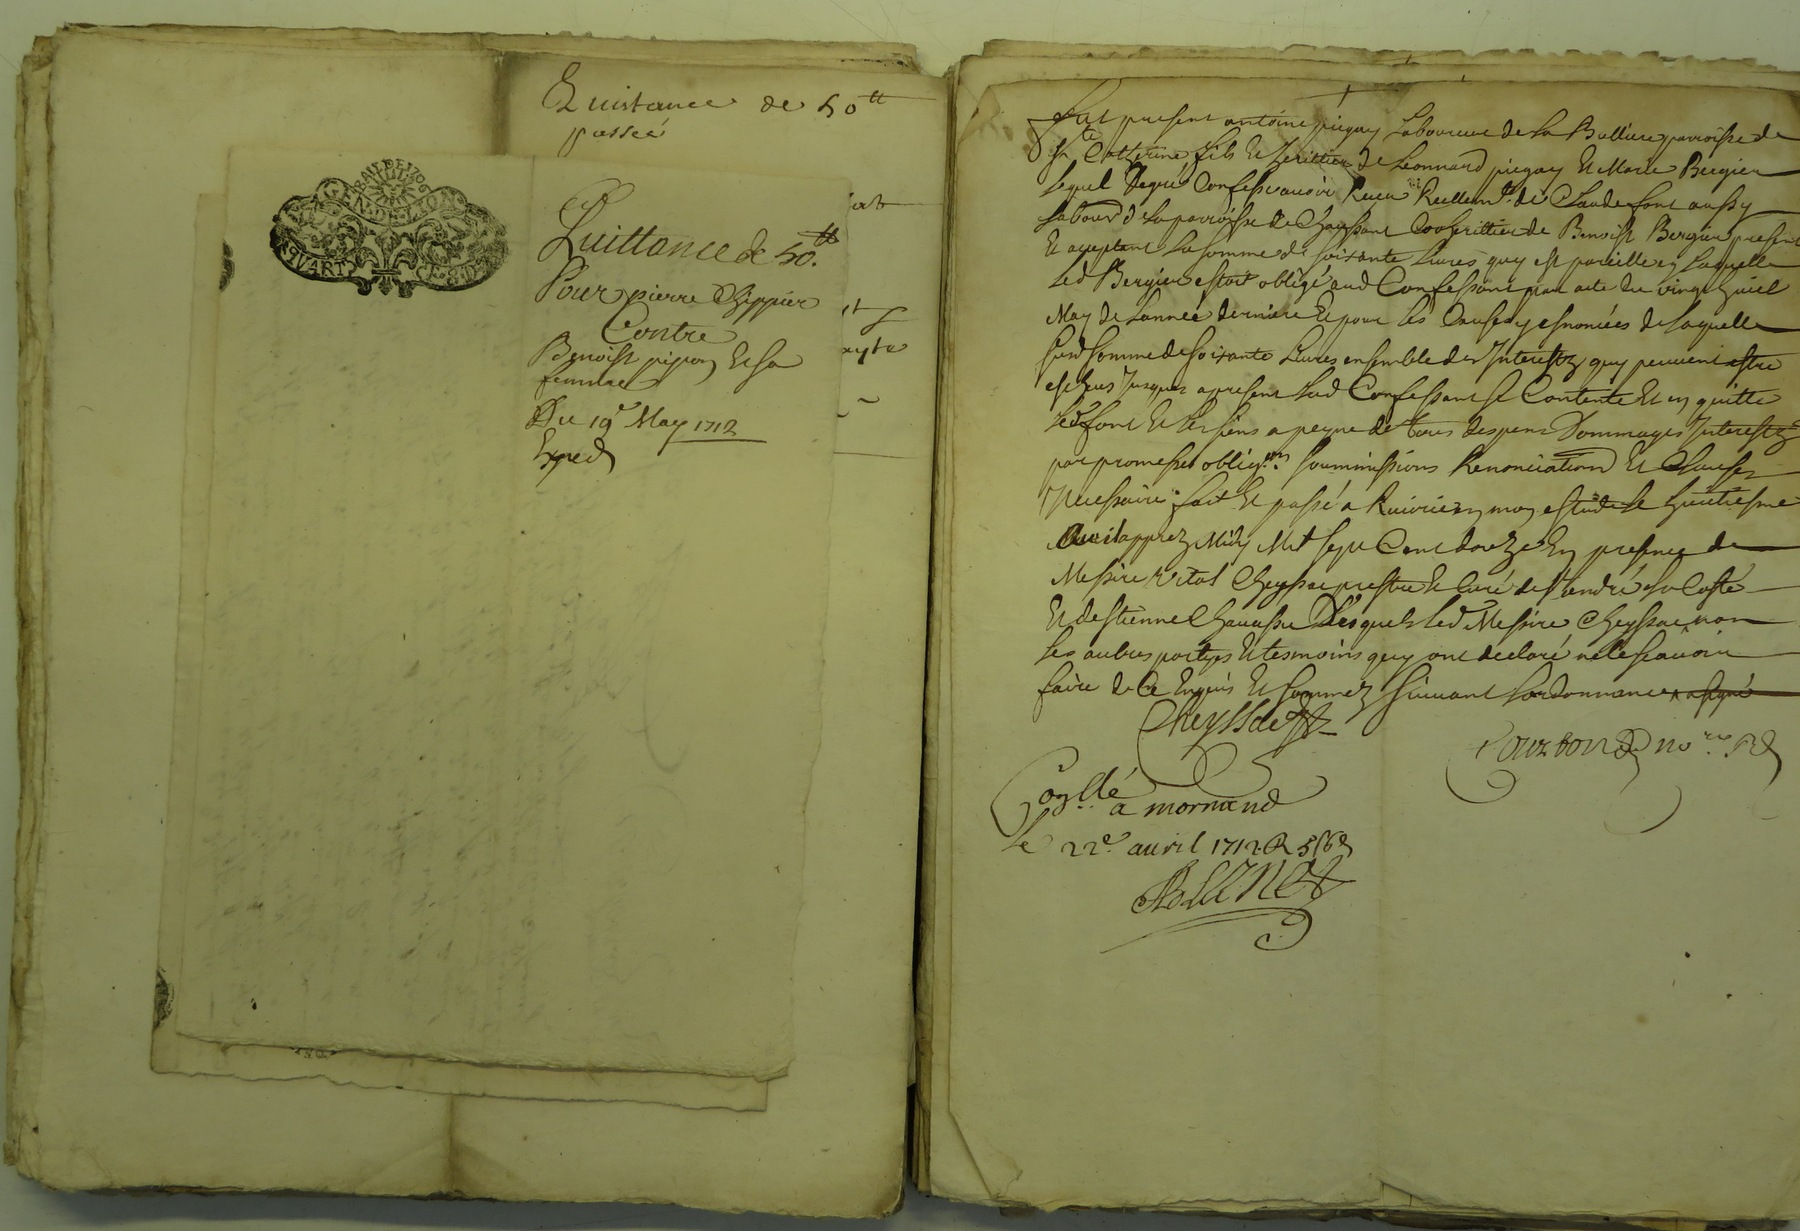 Quistance de 50 tt
passée
GEN. DE LYON
QUART
Quittance de 50. tt
Pour pierre Chippier
Contre
Benoist pipon Et sa
femme
Du 19e May 1712
Exped
Fut present antoine pigay Laboureur de la Bulliere parroisse de
ste Catherine fils Et heritier de Leonnard pigay Et Marie Bergier
Lequel degré Confesse avoir Receu Reellemt. de Claude font aussy
Labourr de la parroisse de Chaussant Cooheritier de Benoist Bergier present
Et aceptant La somme de soixante Livres quy est pareille en Laquelle
Led Bergier estoit obligé aud Confessant par acte du vingt huict
May de Lannée derniere Et pour les Causes y enoncées de Laquelle
susd somme de soixante Livres ensemble des Interestz quy peuvent estre
escheus Jusques a present Led Confessant se Contente Et en quitte
Led font Et les siens a peyne de tous despens Dommages Interestz
par promesses obligons soumissions Renonciations Et Clauses
Necessaire. fait Et passé a Riverie en mon estude le huictiesme
Avril apprez Midy Mil sept Cent douze En presence de
Messire vital Cheyssac prestre Et Curé de St andré La Coste
Et destienne Chavassu Desquels Led Messire Cheyssac non
les autres partyes Et tesmoins quy ont declaré ne le scavoir
faire de Ce Enquis Et sommez suivant Lordonnance a signé
Cheyssac
nore. Rl
Conllé
a mornand
le 22e avril 1712 R